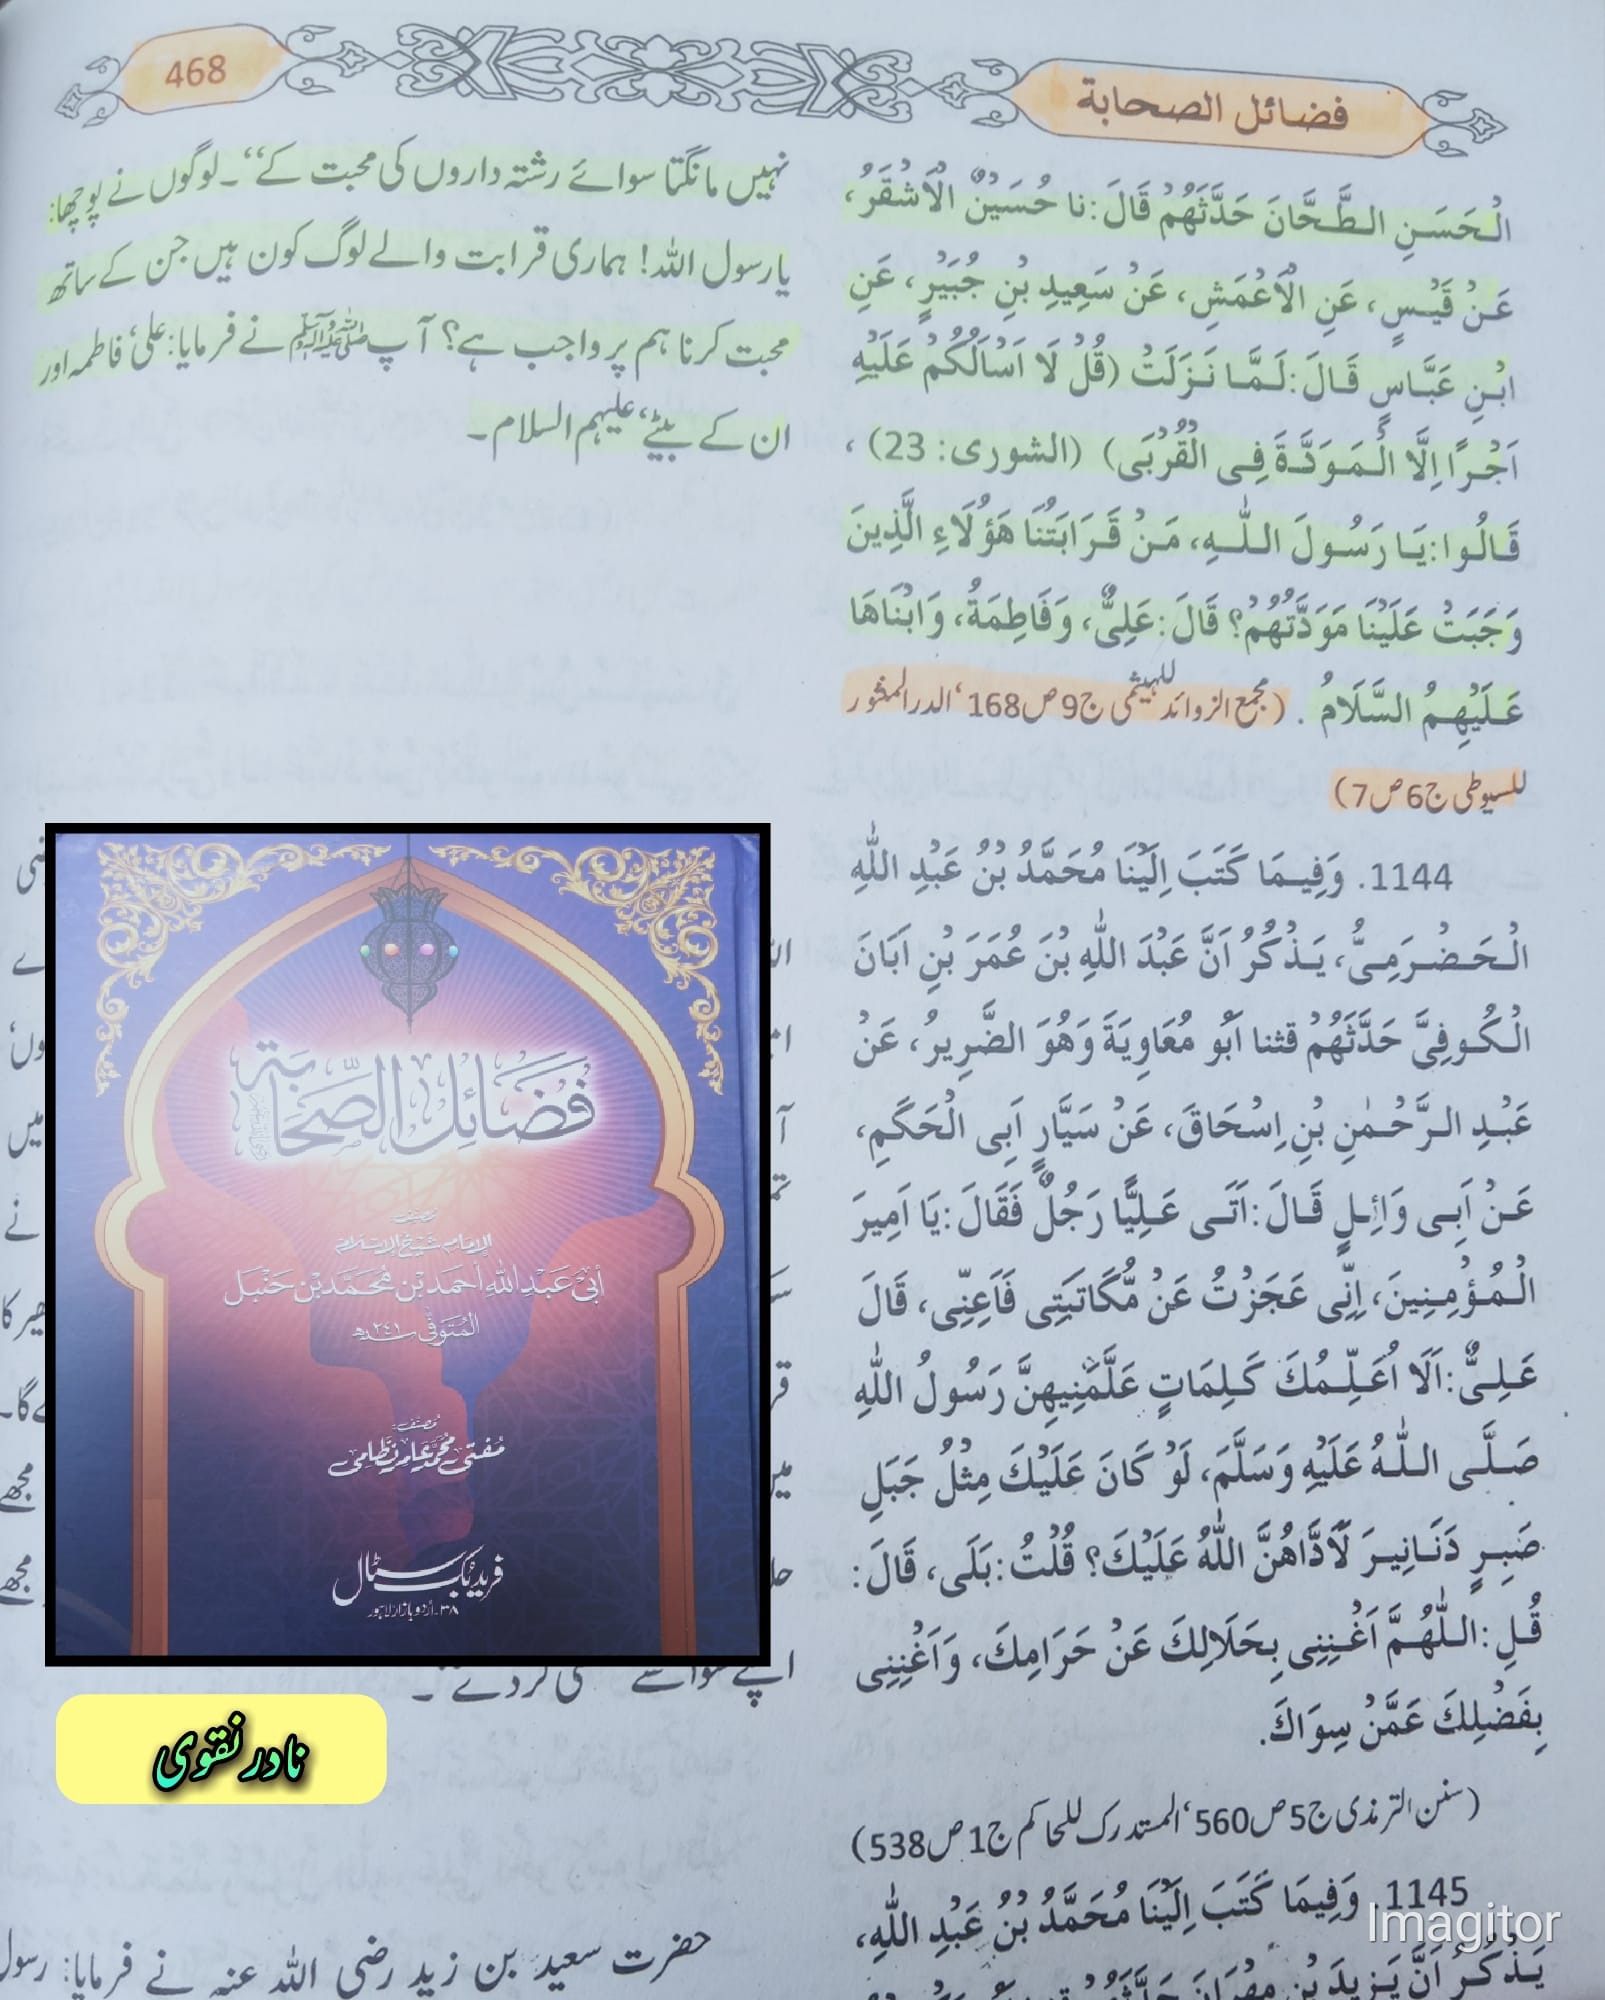 فضائل الصحابة
468
الْحَسَنِ الطَّحَّانَ حَدَّثَهُمْ قَالَ: نا حُسَيْنٌ الْاَشْقَرُ،
عَنْ قَيْسٍ، عَنِ الْاَعْمَشِ، عَنْ سَعِيدِ بْنِ جُبَيْرٍ، عَنِ
ابْنِ عَبَّاسٍ قَالَ: لَمَّا نَزَلَتْ (قُلْ لَا اَسْاَلُكُمْ عَلَيْهِ
اَجْرًا اِلَّا الْمَوَدَّةَ فِی الْقُرْبَی) (الشوری: 23)،
قَالُوا: يَا رَسُولَ اللّٰهِ، مَنْ قَرَابَتُنَا هَؤُلَاءِ الَّذِينَ
وَجَبَتْ عَلَيْنَا مَوَدَّتُهُمْ؟ قَالَ: عَلِیٌّ، وَفَاطِمَةُ، وَابْنَاهَا
عَلَيْهِمُ السَّلَامُ. (مجمع الزوائد للہیثمی ج9 ص168، الدر المنثور
للسیوطی ج6 ص7)
1144. وَفِيمَا كَتَبَ اِلَيْنَا مُحَمَّدُ بْنُ عَبْدِ اللّٰهِ
الْحَضْرَمِیُّ، يَذْكُرُ اَنَّ عَبْدَ اللّٰهِ بْنَ عُمَرَ بْنِ اَبَانَ
الْكُوفِیَّ حَدَّثَهُمْ قثنا اَبُو مُعَاوِيَةَ وَهُوَ الضَّرِيرُ، عَنْ
عَبْدِ الرَّحْمٰنِ بْنِ اِسْحَاقَ، عَنْ سَيَّارٍ اَبِی الْحَكَمِ،
عَنْ اَبِی وَائِلٍ قَالَ: اَتَی عَلِيًّا رَجُلٌ فَقَالَ: يَا اَمِيرَ
الْمُؤْمِنِينَ، اِنِّی عَجَزْتُ عَنْ مُّكَاتَبَتِی فَاَعِنِّی، قَالَ
عَلِیٌّ: اَلَا اُعَلِّمُكَ كَلِمَاتٍ عَلَّمَنِيهِنَّ رَسُولُ اللّٰهِ
صَلَّی اللّٰهُ عَلَيْهِ وَسَلَّمَ، لَوْ كَانَ عَلَيْكَ مِثْلُ جَبَلِ
صَبِرٍ دَنَانِيرَ لَاَدَّاهُنَّ اللّٰهُ عَلَيْكَ؟ قُلْتُ: بَلَی، قَالَ:
قُلِ: اللّٰهُمَّ اَغْنِنِی بِحَلَالِكَ عَنْ حَرَامِكَ، وَاَغْنِنِی
بِفَضْلِكَ عَمَّنْ سِوَاكَ.
(سنن الترمذی ج5 ص560، المستدرک للحاکم ج1 ص538)
1145. وَفِيمَا كَتَبَ اِلَيْنَا مُحَمَّدُ بْنُ عَبْدِ اللّٰهِ،
يَذْكُرُ اَنَّ يَزِيدَ بْنَ مِهْرَانَ
نہیں مانگتا سوائے رشتہ داروں کی محبت کے“۔ لوگوں نے پوچھا:
یا رسول اللہ! ہماری قرابت والے لوگ کون ہیں جن کے ساتھ
محبت کرنا ہم پر واجب ہے؟ آپ ﷺ نے فرمایا: علی، فاطمہ اور
ان کے بیٹے، علیہم السلام۔
فَضَائِلُ الصَّحَابَة
مصنف
الإمام شيخ الإسلام
أبي عبد الله أحمد بن محمد بن حنبل
المتوفى ٢٤١ھ
مصنف:
مفتی محمد عامر نظامی
فرید بک سٹال
٣٨۔ اردو بازار لاہور
نادر نقوی
حضرت سعید بن زید رضی اللہ عنہ نے فرمایا: رسول
Imagitor